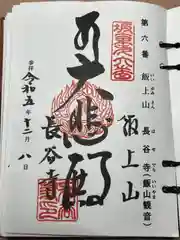 第六番 飯上山 長谷寺(飯山観音)
坂東第六番
飯上山
大悲殿
長谷寺
令和五年十二月八日